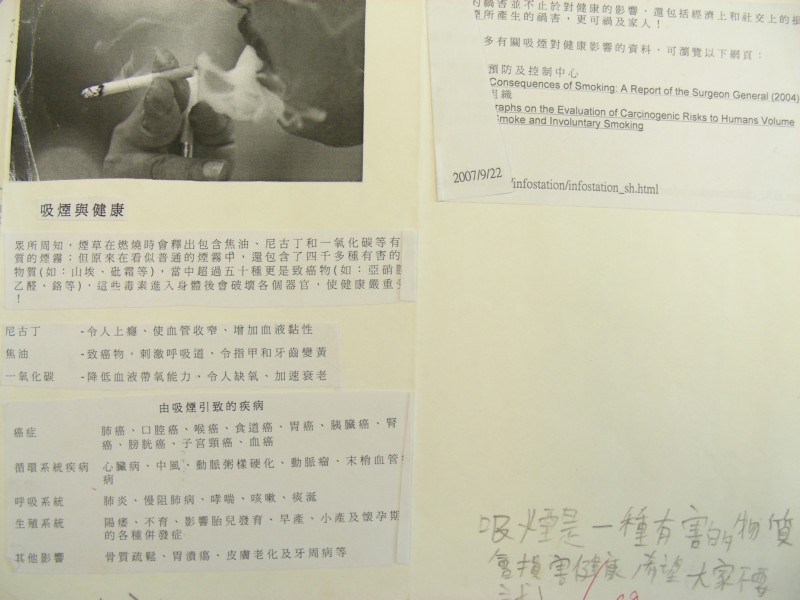 吸煙與健康
眾所周知，煙草在燃燒時會釋出包含焦油、尼古丁和一氧化碳等有
質的煙霧；但原來在看似普通的煙霧中，還包含了四千多種有害的
物質(如：山埃、砒霜等)，當中超過五十種更是致癌物(如：亞硝
乙醛、鉻等)，這些毒素進入身體後會破壞各個器官，使健康嚴重
！
尼古丁 -令人上癮、使血管收窄、增加血液黏性
焦油 -致癌物，刺激呼吸道，令指甲和牙齒變黃
一氧化碳 -降低血液帶氧能力、令人缺氧、加速衰老
由吸煙引致的疾病
癌症 肺癌、口腔癌、喉癌、食道癌、胃癌、胰臟癌、腎
癌、膀胱癌、子宮頸癌、血癌
循環系統疾病 心臟病、中風、動脈粥樣硬化、動脈瘤、末梢血管
病
呼吸系統 肺炎、慢阻肺病、哮喘、咳嗽、痰涎
生殖系統 陽痿、不育、影響胎兒發育、早產、小產及懷孕期
的各種併發症
其他影響 骨質疏鬆、胃潰瘍、皮膚老化及牙周病等
的禍害並不止於對健康的影響，還包括經濟上和社交上的損
所產生的禍害，更可禍及家人！
多有關吸煙對健康影響的資料，可瀏覽以下網頁：
預防及控制中心
Consequences of Smoking: A Report of the Surgeon General (2004)
組織
raphs on the Evaluation of Carcinogenic Risks to Humans Volume
Smoke and Involuntary Smoking
2007/9/22
/infostation/infostation_sh.html
吸煙是一種有害的物質
會損害健康 希望大家不要